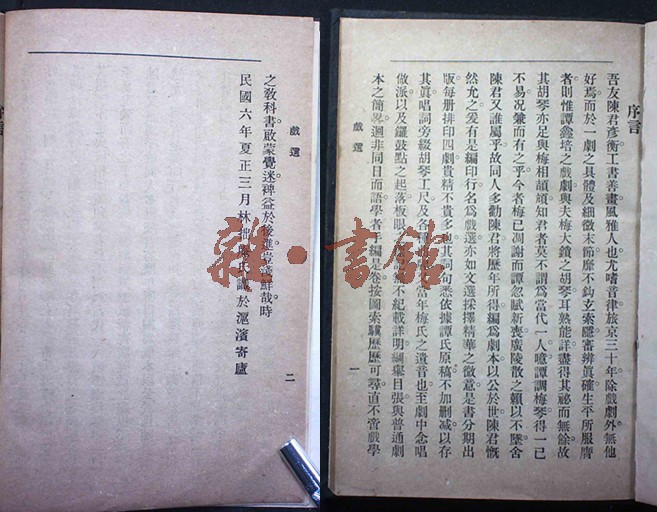 序言
吾友陳君彥衡工書善畫風雅人也尤嗜音律旅京三十年除戲劇外無他
好焉而於一劇之具體及細微末節靡不鈎玄索隱審辨眞確生平所服膺
者則惟譚鑫培之戲劇與夫梅大鎖之胡琴耳熟能詳盡得其祕而無餘故
其胡琴亦足與梅相頡頏知君者莫不謂爲當代一人噫譚調梅琴得一已
不易况兼而有之乎今者梅已凋謝而譚忽賦新喪廣陵散之賴以不墜舍
陳君又誰屬乎故同人多勸陳君將歷年所得編爲劇本以公於世陳君慨
然允之爰有是編印行名爲戲選亦如文選採擇精華之微意是書分期出
版每册排印四劇貴精不貴多也其詞句悉依據譚氏原稿不加刪减以存
其眞唱詞旁綴胡琴工尺及各 當年梅氏之遺音也至劇中念唱
做派以及鑼鼓點之起落板眼 不紀載詳明綱舉目張與普通劇
本之簡畧迥非同日而語學者手編是卷按圖索驥歷歷可尋直不啻戲學
戲選
一
戲選
之敎科書啟蒙覺迷裨益於後進豈淺鮮哉時
民國六年夏正三月林拙 氏識於滬濱寄廬
二
雜·書館